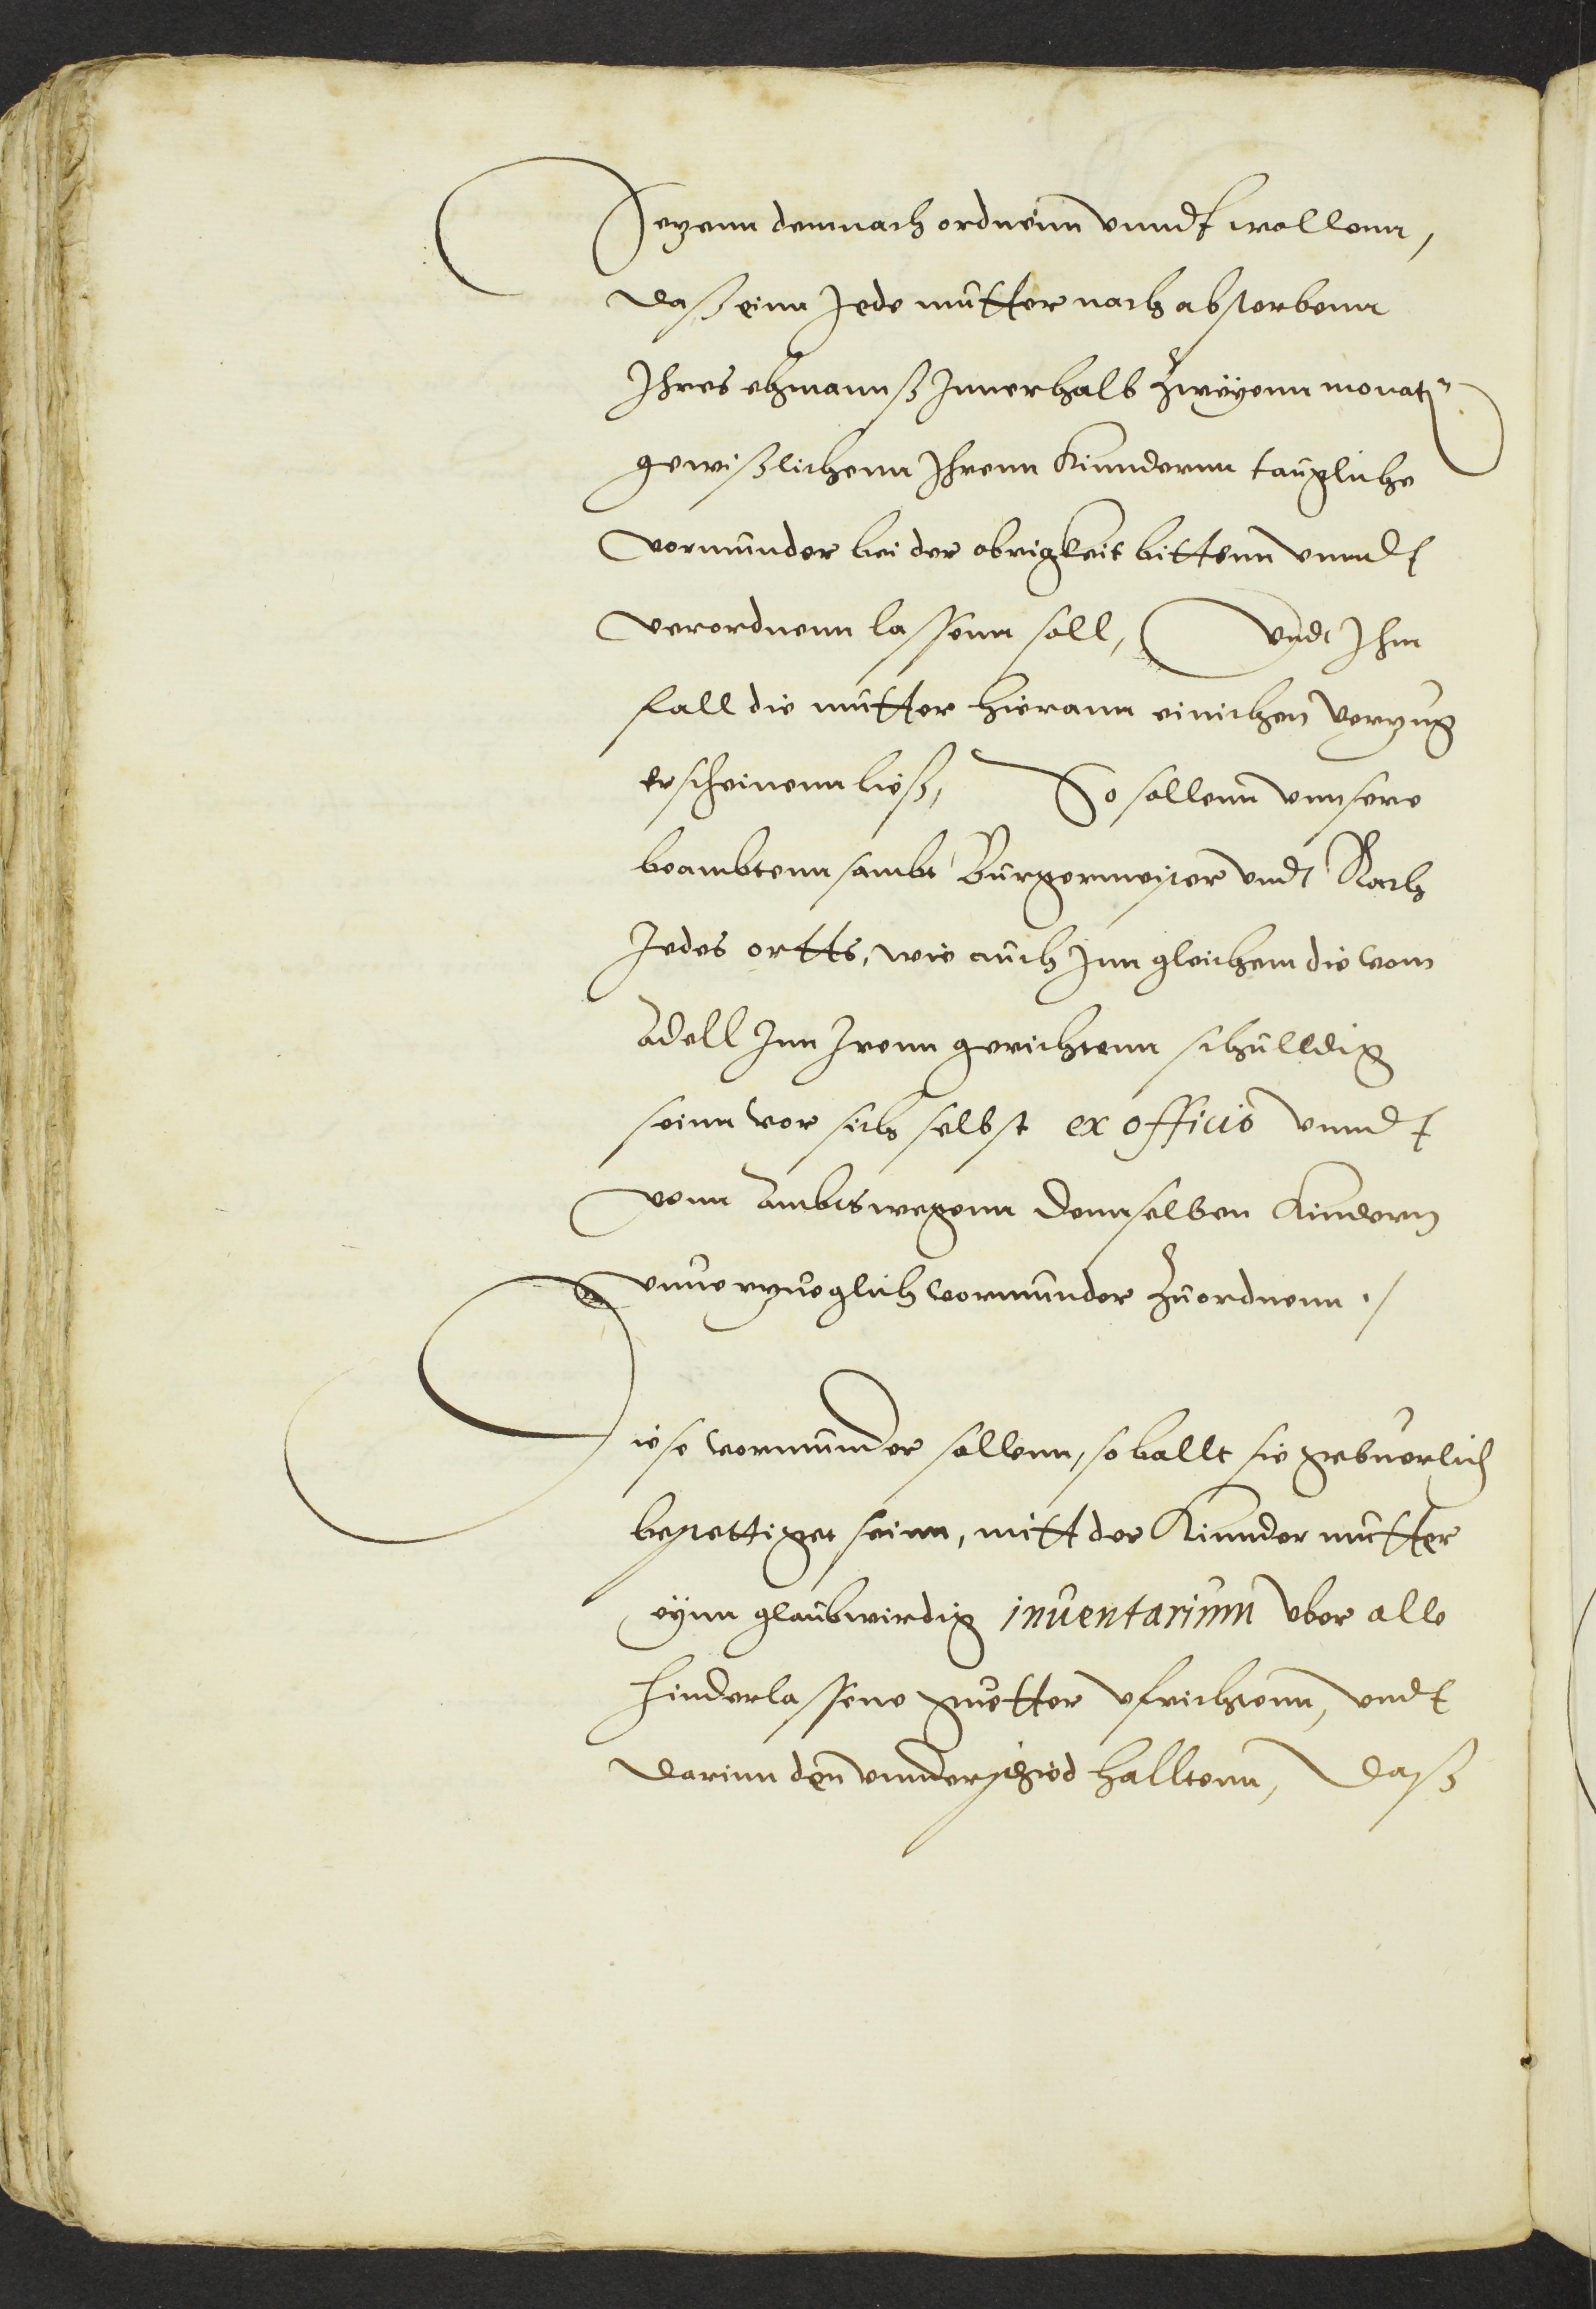 Setzenn demnach ordnenn vnndt wollenn,
daß einn Jede mutter nach absterbenn
Ihres ehmannß Innerhalb zweyenn monat
gewißlichenn Ihrenn Kinndernn taugliche
vormunder bei der obrigkeit bittenn vnndt
verordnenn lassenn soll, Vndt Ihm
fall die mutter hierann einichen verzug
erscheinenn ließ, So sollenn vnnsere
beambtenn sambt Burgermeister vndt Rath
Jedes ortts, wie auch Inn gleichem die vom
Adell Inn Irenn gerichtenn schulldig
seinn vor sich selbst ex officio vnndt
vonn Ambtswegenn dennselben Kindern
vnuerzueglich vormunder zuordnenn ./
Diese vormunder sollenn, so ballt sie gebuerlich
bestettiget seinn, mitt der Kinnder mutter
eynn glaubwirdig inuentarium vber alle
hinderlassene guetter vfrichtenn, vndt
darinn denn vnnderschied halltenn, daß